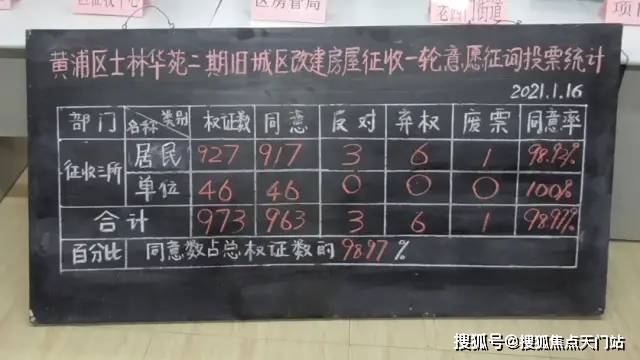 区房管局
老西门街道
黄浦区士林华苑二期旧城区改建房屋征收一轮意愿征询投票统计
2021.1.16
部门 名称 类别 权证数 同意 反对 弃权 废票 同意率
征收三所 居民 927 917 3 6 1 98.92%
单位 46 46 0 0 0 100%
合计 973 963 3 6 1 98.97%
百分比 同意数占总权证数的 98.97 %
搜狐号@搜狐焦点天门站